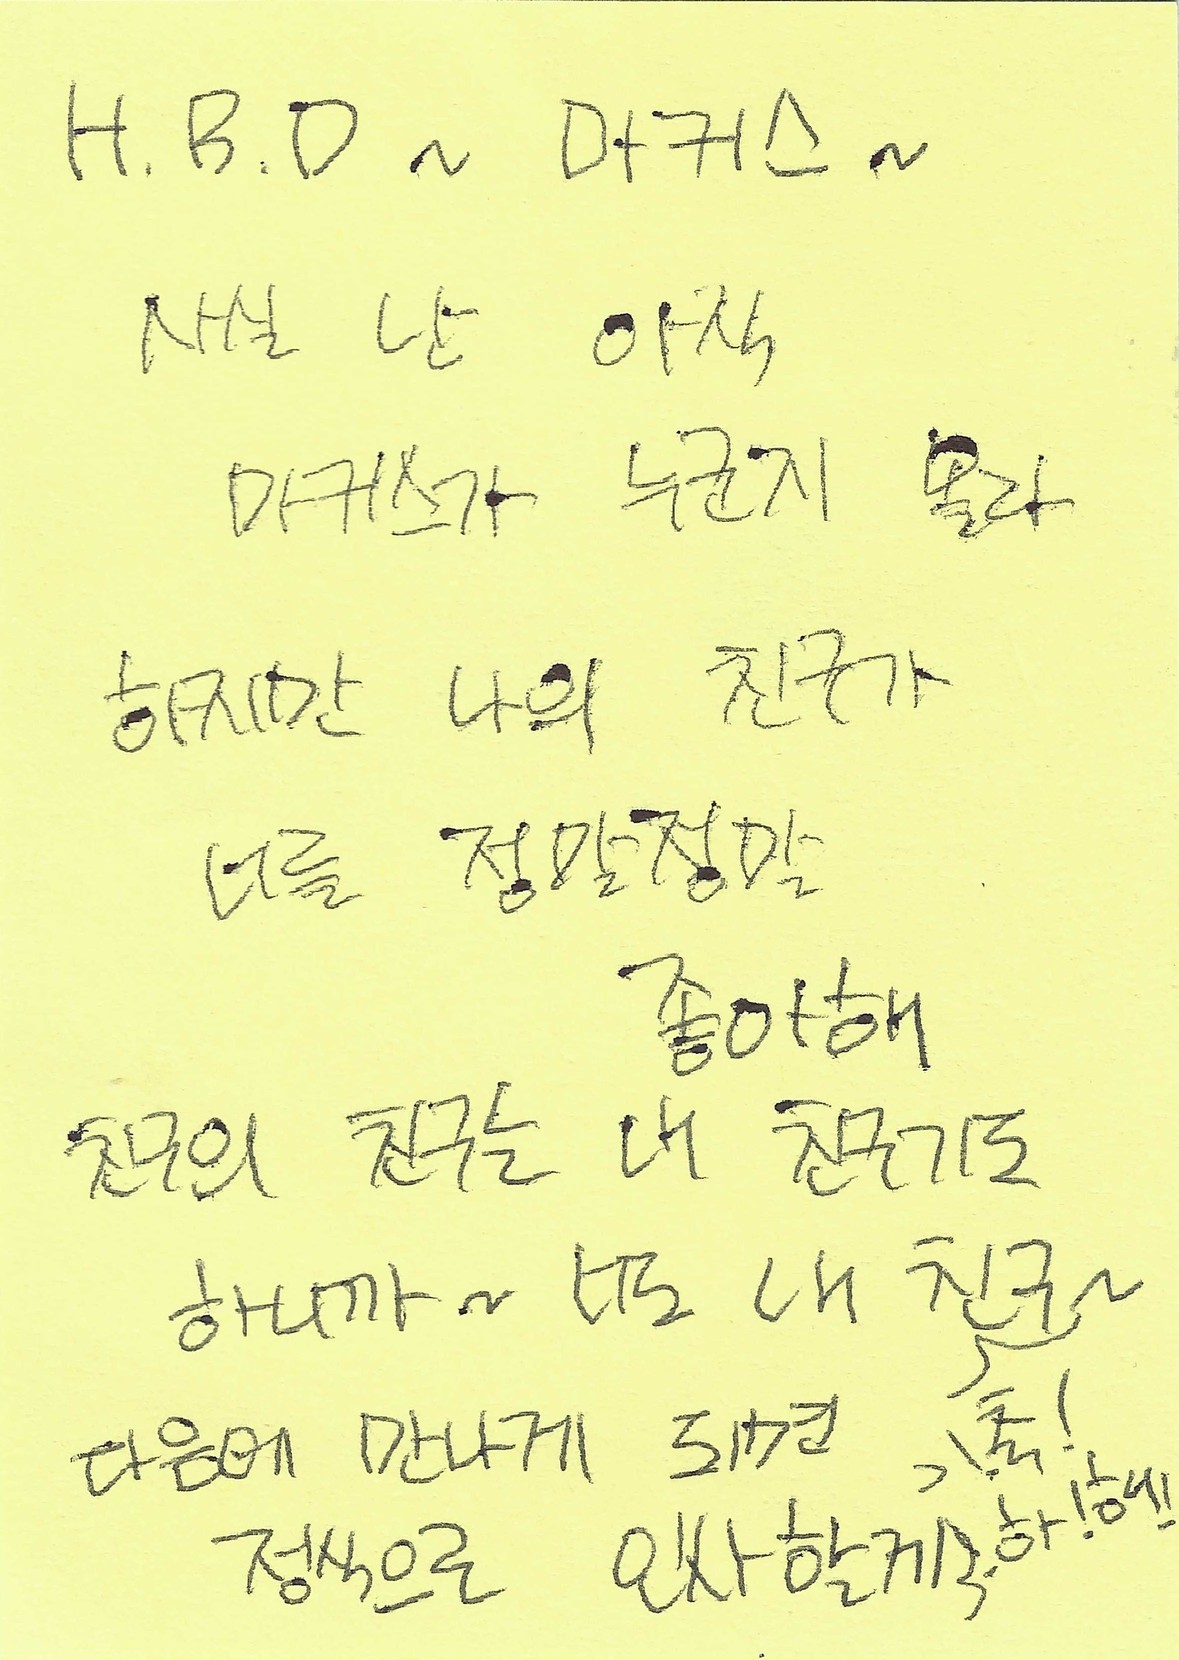 H.B.D ~ 마커스 ~
사실 난 아직
마커스가 누군지 몰라
하지만 나의 친구가
너를 정말정말
좋아해
친구의 친구는 내 친구기도
하니까~ 너도 내 친구~
다음에 만나게 되면 축!
정식으로 인사할게 축하!해!!